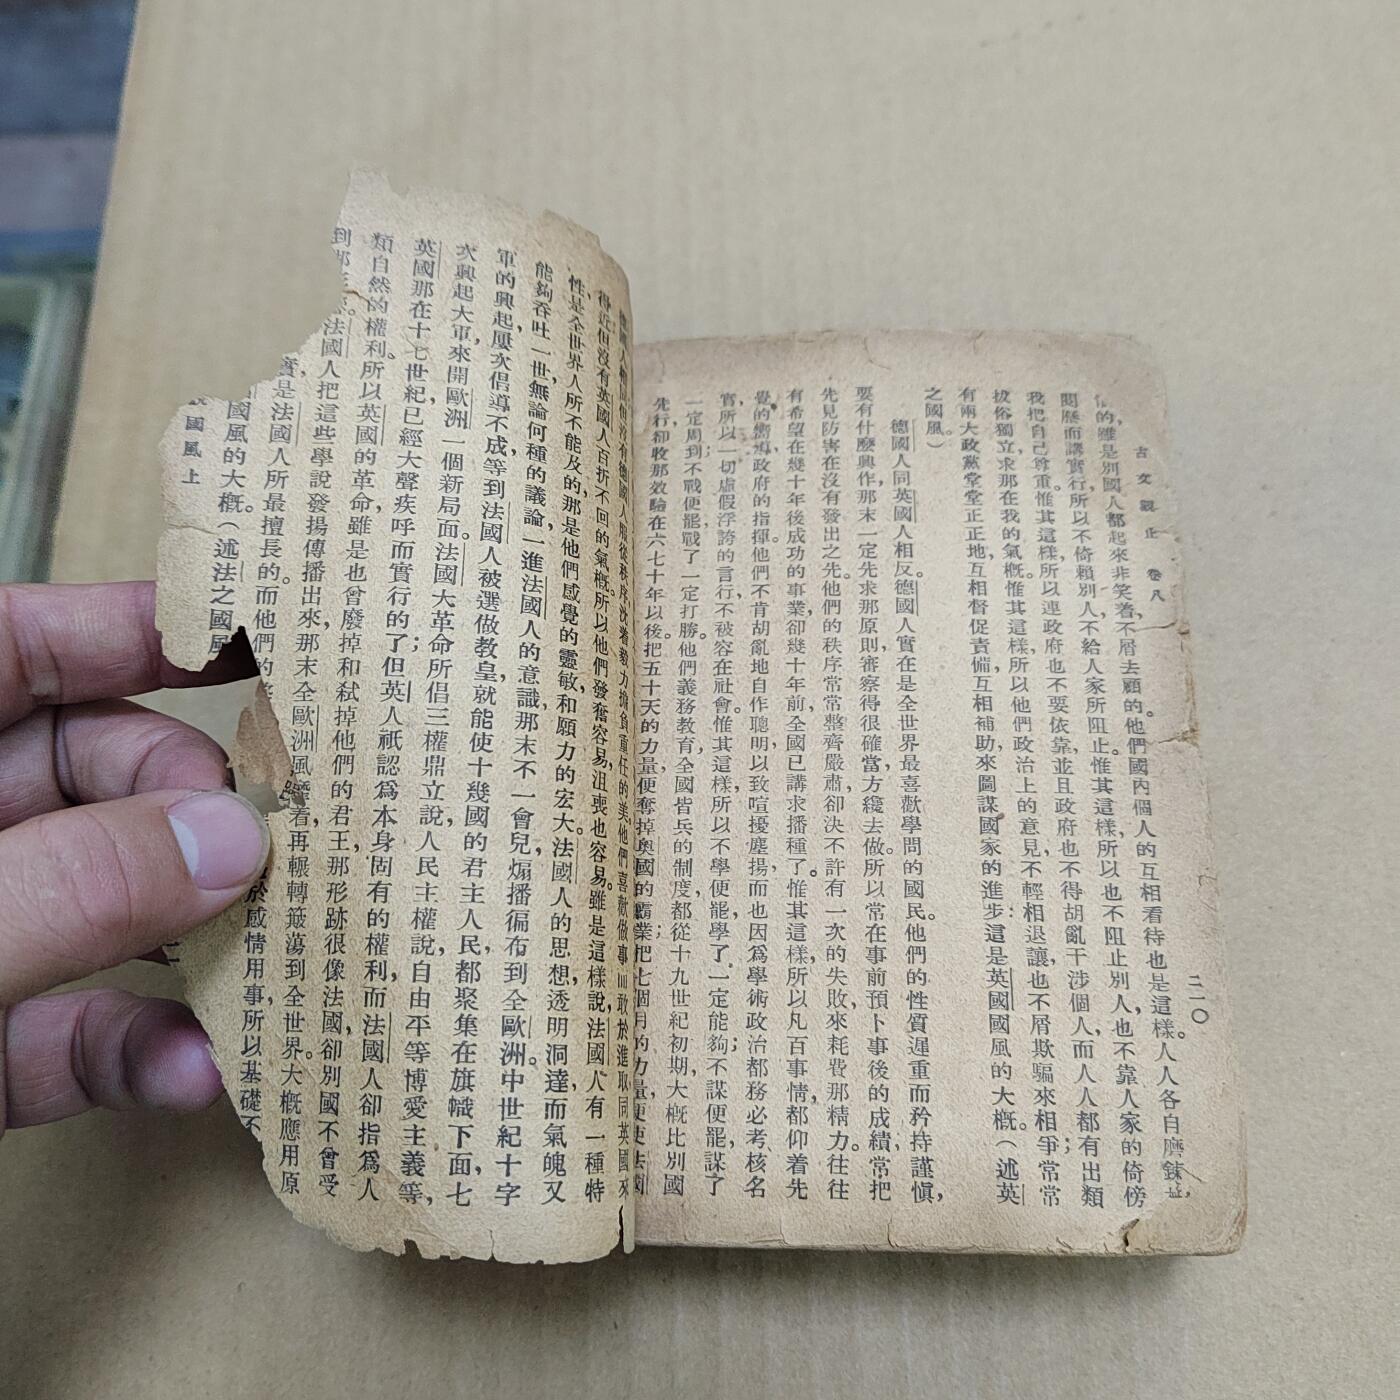 古文觀止 卷八
二一〇
的雖是別國人都起來非笑着,不屑去顧的。他們國內個人的互相看待也是這樣。人人各自磨鍊,
閱歷而講實行,所以不倚賴別人,不給人家所阻止。惟其這樣,所以也不阻止別人,也不靠人家的倚傍
我把自己尊重。惟其這樣,所以連政府也不要依靠,並且政府也不得胡亂干涉個人,而人人都有出類
拔俗獨立求那在我的氣概。惟其這樣,所以他們政治上的意見不輕相退讓,也不屑欺騙來相爭;常常
有兩大政黨堂堂正正地互相督促責備,互相補助,來圖謀國家的進步:這是英國國風的大概。(述英
之國風。)
德國人同英國人相反。德國人實在是全世界最喜歡學問的國民。他們的性質遲重而矜持謹愼,
要有什麼興作,那末一定先求那原則審察得很確當,方纔去做。所以常在事前預卜事後的成績,常把
先見防害在沒有發出之先。他們的秩序常常整齊嚴肅,卻決不許有一次的失敗,來耗費那精力。往往
有希望在幾十年後成功的事業,卻幾十年前全國已講求播種了。惟其這樣,所以凡百事情,都仰着先
覺的嚮導,政府的指揮,他們不肯胡亂地自作聰明,以致喧擾塵揚,而也因爲學術政治都務必考核名
實,所以一切虛假浮誇的言行,不被容在社會。惟其這樣,所以不學便罷,學了一定能夠;不謀便罷,謀了
一定周到;不戰便罷,戰了一定打勝。他們義務教育,全國皆兵的制度,都從十九世紀初期,大概比別國
先行,卻收那效驗在六七十年以後。把五十天的力量,便奪掉奧國的霸業;把七個月的力量,便使法國
得近但沒有英國人百折不回的氣概。所以他們發奮容易,沮喪也容易。雖是這樣說,法國人有一種特
性,是全世界人所不能及的,那是他們感覺的靈敏,和願力的宏大。法國人的思想,透明洞達,而氣魄又
能夠吞吐一世,無論何種的議論,一進法國人的意識,那末不一會兒,煽播徧布到全歐洲。中世紀十字
軍的興起,屢次倡導不成,等到法國人被選做教皇,就能使十幾國的君主人民,都聚集在旗幟下面,七
次興起大軍來開歐洲一個新局面。法國大革命所倡三權鼎立說,人民主權說,自由平等博愛主義等,
英國那在十七世紀,已經大聲疾呼而實行的了;但英人祇認爲本身固有的權利,而法國人卻指爲人
類自然的權利。所以英國的革命,雖是也曾廢掉和弒掉他們的君王,那形跡很像法國,卻別國不曾受
法國人把這些學說發揚傳播出來,那末全歐洲風靡着,再輾轉簸蕩到全世界。大概應用原
是法國人所最擅長的。而他們
於感情用事,所以基礎不
國風的大概。(述法之國風
國風上